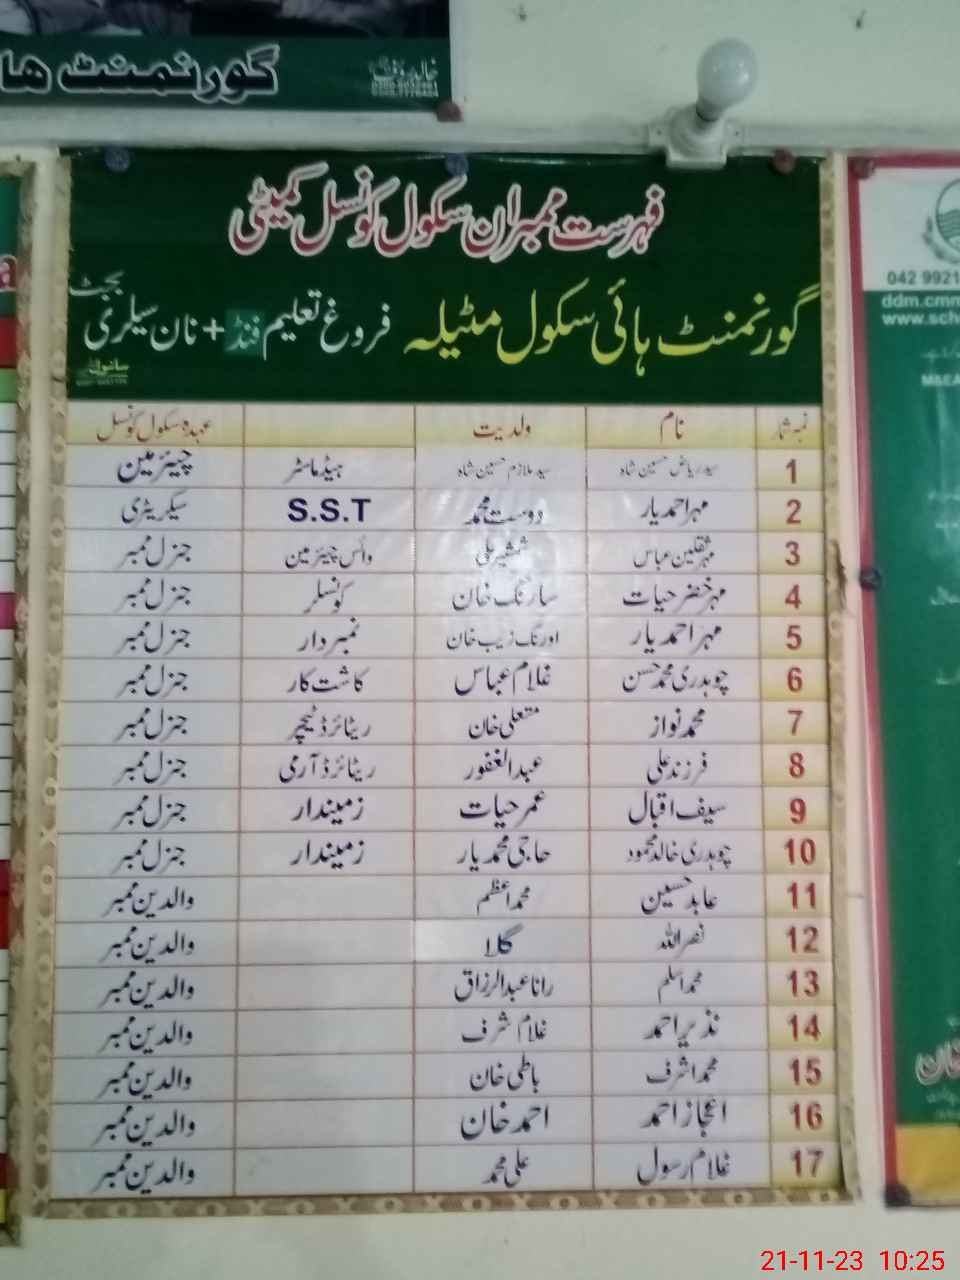 گورنمنٹ ها
فہرست ممبران سکول کونسل کمیٹی
گورنمنٹ ہائی سکول مٹیلہ فروغ تعلیم فنڈ + نان سیلری بجٹ
نمبر شمار نام ولدیت عہدہ سکول کونسل
1 سید ریاض حسین شاہ سید ملازم حسین شاہ ہیڈ ماسٹر چیئرمین
2 مہر احمد یار دوست محمد S.S.T سیکریٹری
3 مہر ثقلین عباس شمشیر علی وائس چیئرمین جنرل ممبر
4 مہر خضر حیات سارنگ خان کونسلر جنرل ممبر
5 مہر احمد یار اورنگ زیب خان نمبردار جنرل ممبر
6 چوہدری محمد حسن غلام عباس کاشت کار جنرل ممبر
7 محمد نواز متعلی خان ریٹائرڈ ٹیچر جنرل ممبر
8 فرزند علی عبدالغفور ریٹائرڈ آرمی جنرل ممبر
9 سیف اقبال عمر حیات زمیندار جنرل ممبر
10 چوہدری خالد محمود حاجی محمد یار زمیندار جنرل ممبر
11 عابد حسین محمد اعظم والدین ممبر
12 نصر اللہ گلا والدین ممبر
13 محمد اسلم رانا عبدالرزاق والدین ممبر
14 نذیر احمد غلام شرف والدین ممبر
15 محمد اشرف باطی خان والدین ممبر
16 اعجاز احمد احمد خان والدین ممبر
17 غلام رسول علی محمد والدین ممبر
042 9921
ddm.cmm
www.sch
خان
21-11-23 10:25